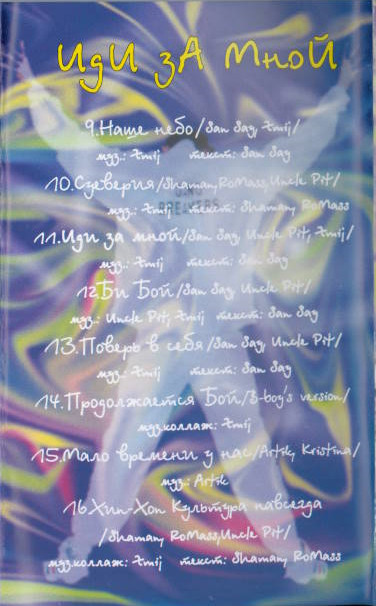 Иди зА мной
9.Наше небо/San Say, Xmij/
муз.: Xmij текст: San Say
10.Суеверия/Shaman,RoMass,Uncle Pit/
муз.: Xmij текст: Shaman, RoMass
11.Иди за мной/San Say, Uncle Pit, Xmij/
муз.: Xmij текст: San Say
12.Би Бой/San Say, Uncle Pit/
муз.: Uncle Pit, Xmij текст: San Say
13.Поверь в себя/San Say, Uncle Pit/
муз.: Xmij текст: San Say
14.Продолжается Бой/B-boy's version/
муз.коллаж: Xmij
15.Мало времени у нас/Artik, Kristina/
муз.: Artik
16.Хип-Хоп Культура навсегда
/Shaman, RoMass,Uncle Pit/
муз.коллаж: Xmij текст: Shaman, RoMass